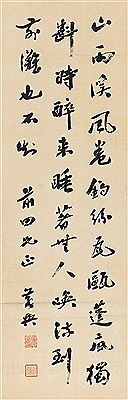 山雨溪風卷釣絲瓦甌蓬底獨
斟時醉來睡著無人喚流到
前灘也不知
前田先正
黃興